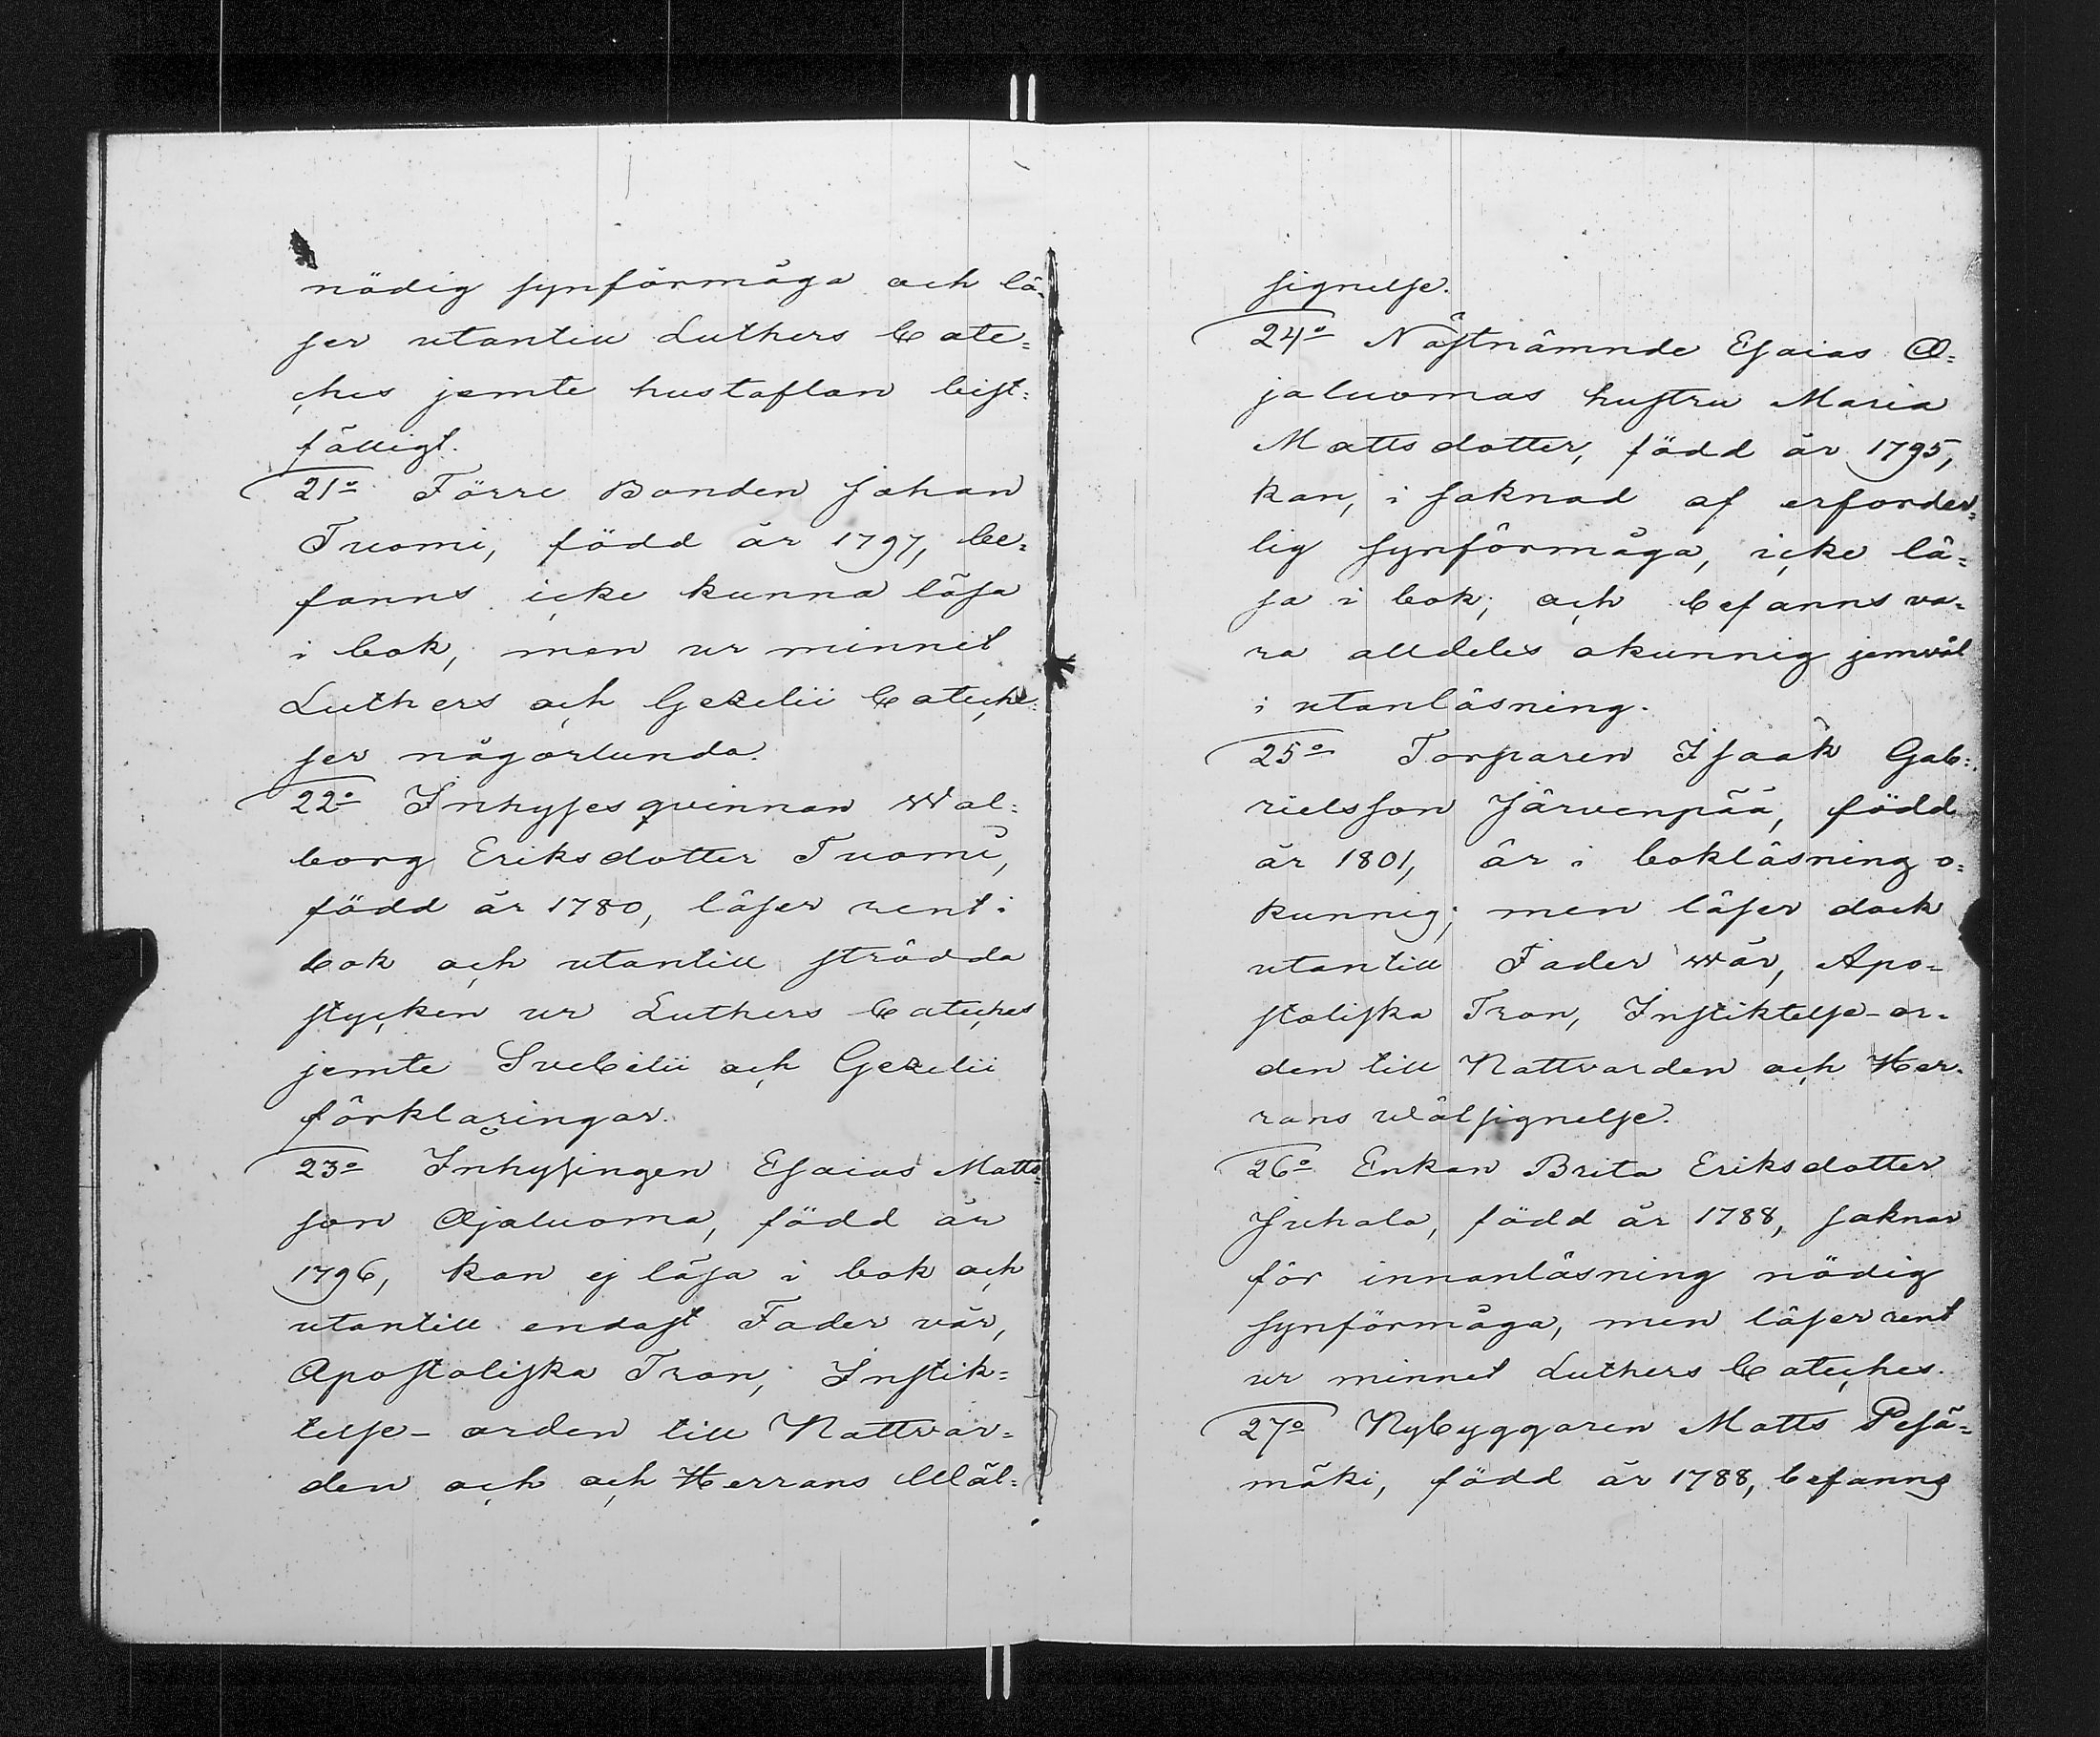 nödig synförmåga och lä-
ser utantill Luthers Cate=
ches jemte hustaflan bist=
fälligt.
21o Förre Bonden Johan
Tuomi, född år 1797, be=
fanns icke kunna läsa
i bok, men ur minnet
Luthers och Gezelii Cateche=
ser någorlunda.
22o Inhyses qvinnan Wal=
borg Eriksdotter Tuomi,
född år 1780, läser rent i
bok och utantill strödda
stycken ur Luthers Cateches
jemte Svebilii och Gezelii
förklaringar.
23o Inhysingen Esaias Matts=
son Ojaluoma, född år
1796, kan ej läsa i bok och
utantill endast Fader vår,
Apostoliska Tron, Instik=
telse-orden till Nattvar=
den och och Herrans Wäl=
signelse.
24o Nästnämnde Esaias O=
jaluomas hustru Maria
Mattsdotter, född år 1795,
kan, i saknad af erforder=
lig synförmåga, icke lä=
sa i bok; och befanns va=
ra alldeles okunnig jemväl
i utanläsning.
25o Torparen Isaak Gab=
rielsson Järvenpää, född
år 1801, är i bokläsning o=
kunnig; men läser dock
utantill Fader Wår, Apo=
stoliska Tron, Instiktelse-or=
den till Nattvarden och Her=
rans Wälsignelse.
26o Enkan Brita Eriksdotter
Juhola, född år 1788, saknar
för innanläsning nödig
synförmåga, men läser rent
ur minnet Luthers Cateches.
27o Nybyggaren Matts Pesä=
mäki, född år 1788, befanns